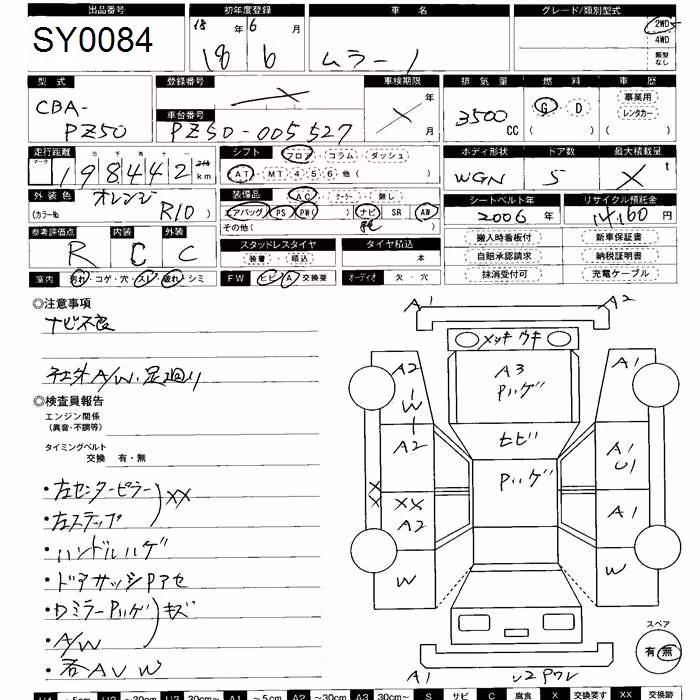 出品番号 初年度登録 車名 グレード/類別型式
SY0084 18年 6月 2WD
18 6 ムラーノ 4WD
類型なし
型式 登録番号 車検期限 排気量 燃料 車歴
CBA- 年 3500 G・D 事業用
PZ50 車台番号 X CC ( ) レンタカー
PZ50-005527 月 ( )
走行距離 シフト フロア・コラム・ダッシュ ボディ形状 ドア数 最大積載量
マーク 十万 万 千 百 十
198442 km AT・MT 4 5 6 他( ) WGN 5 X t
外装色 オレンジ 装備品 AC・クーラー・無し シートベルト年 リサイクル預託金
(カラーNo. R10 ) エアバッグ PS PW( ) ナビ SR AW 2006年 14,160円
その他( )
参考評価点 内装 外装 スタッドレスタイヤ タイヤ積込 搬入時看板付 新車保証書
R C C 装着・積込 本 自賠承認請求 納税証明書
室内 汚れ・コゲ・穴・スレ・破れ・シミ FW ヒビ・A・交換要 オーディオ 欠・穴 抹消受付可 充電ケーブル
◎注意事項
ナビ不良
社外A/W・足廻り
◎検査員報告
エンジン関係
(異音・不調等)
タイミングベルト
交換 有・無
・左センターピラー
・左ステップ XX
・ハンドルハゲ
・ドアサッシPアセ
・Dミラー Pハゲ キズ
・A/W
・各AUW
A1 A2
メッキ ウキ
A2 A3 A1
Pハゲ
W
A2 ヒビ A1
U1
Pハゲ
X
X
XX A1
A2
W W
スペア
有・無
A1 U2 Pワレ
A1 ~5cm A2 ~30cm A3 30cm~ S サビ C 腐食 X 交換要す XX 交換跡